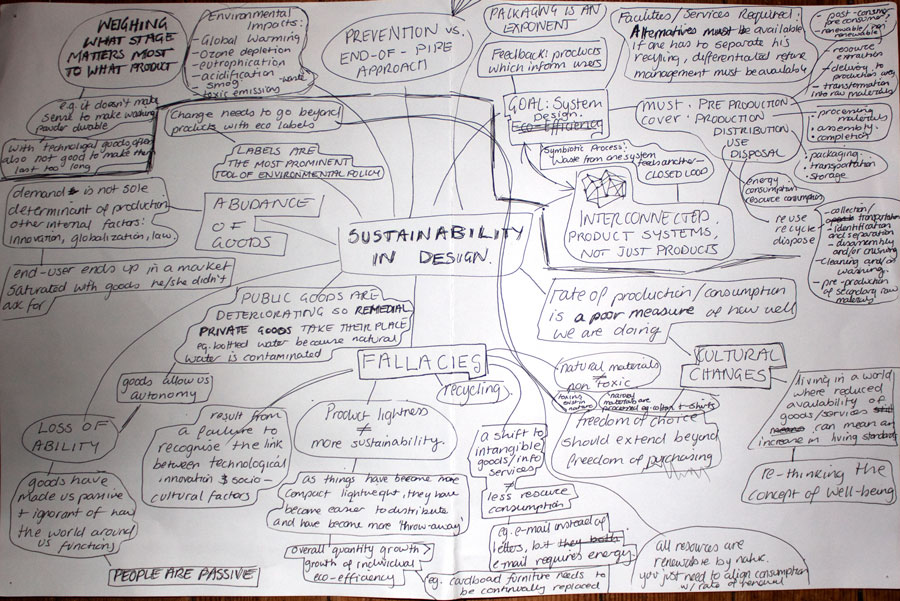 WEIGHING
WHAT STAGE
MATTERS MOST
TO WHAT PRODUCT
e.g. it doesn't make
sense to make washing
powder durable
with technological goods often
also not good to make them
last too long
Environmental
Impacts:
- Global Warming
- Ozone depletion
- eutrophication
- acidification
smog waste
- toxic emissions
Change needs to go beyond
products with eco labels
LABELS ARE
THE MOST PROMINENT
TOOL OF ENVIRONMENTAL POLICY
PREVENTION VS.
END-OF-PIPE
APPROACH
PACKAGING IS AN
EXPONENT
Feedback: products
which inform users
GOAL: System
Design.
Eco-Efficiency
Symbiotic Process:
waste from one system
feeds another -
CLOSED LOOP
INTERCONNECTED
PRODUCT SYSTEMS,
NOT JUST PRODUCTS
Facilities/Services Required:
Alternatives must be available
if one has to separate his
recycling, differentiated refuse
management must be available
MUST · PRE PRODUCTION
COVER · PRODUCTION
DISTRIBUTION
USE
DISPOSAL
- post-consumer/
pre consumer
- renewable/non
renewable
- resource
extraction
- delivery to
production area
- transformation
into raw materials
· processing
materials
· assembly
· completion
· packaging
· transportation
· storage
energy
consumption
resource consumption
reuse
recycle
dispose
- collection/
transportation
- identification
and separation
- disassembly
and/or crushing
- cleaning and/or
washing.
- pre-production
of secondary raw
materials
demand is not sole
determinant of production
other internal factors:
innovation, globalization, law
ABUDANCE
OF
GOODS
end-user ends up in a market
saturated with goods he/she didn't
ask for
SUSTAINABILITY
IN DESIGN.
PUBLIC GOODS ARE
DETERIORATING SO REMEDIAL
PRIVATE GOODS TAKE THEIR PLACE
eg. bottled water because natural
water is contaminated
rate of production/consumption
is a poor measure of how well
we are doing
goods allow us
autonomy
LOSS OF
ABILITY
goods have
made us passive
+ ignorant of how
the world around
us functions
PEOPLE ARE PASSIVE
FALLACIES
result from
a failure to
recognise the link
between technological
innovation & socio-
cultural factors
Product lightness
≠
more sustainability.
as things have become more
compact lightweight, they have
become easier to distribute
and have become more 'throw-away'
overall quantity growth >
growth of individual
eco-efficiency
recycling
a shift to
intangible
goods/info
services
≠
less resource
consumption
eg. e-mail instead of
letters, but they both
e-mail requires energy.
eg. cardboard furniture needs to
be continually replaced
natural materials
≠
non toxic
toxins exist in
nature
natural
materials are
processed eg. cotton t-shirts
freedom of choice
should extend beyond
freedom of purchasing
all resources are
renewable by nature
you just need to align consumption
w/ rate of renewal
CULTURAL
CHANGES
living in a world
where reduced
availability of
goods/services still
means can mean an
increase in living standards
re-thinking the
concept of well-being